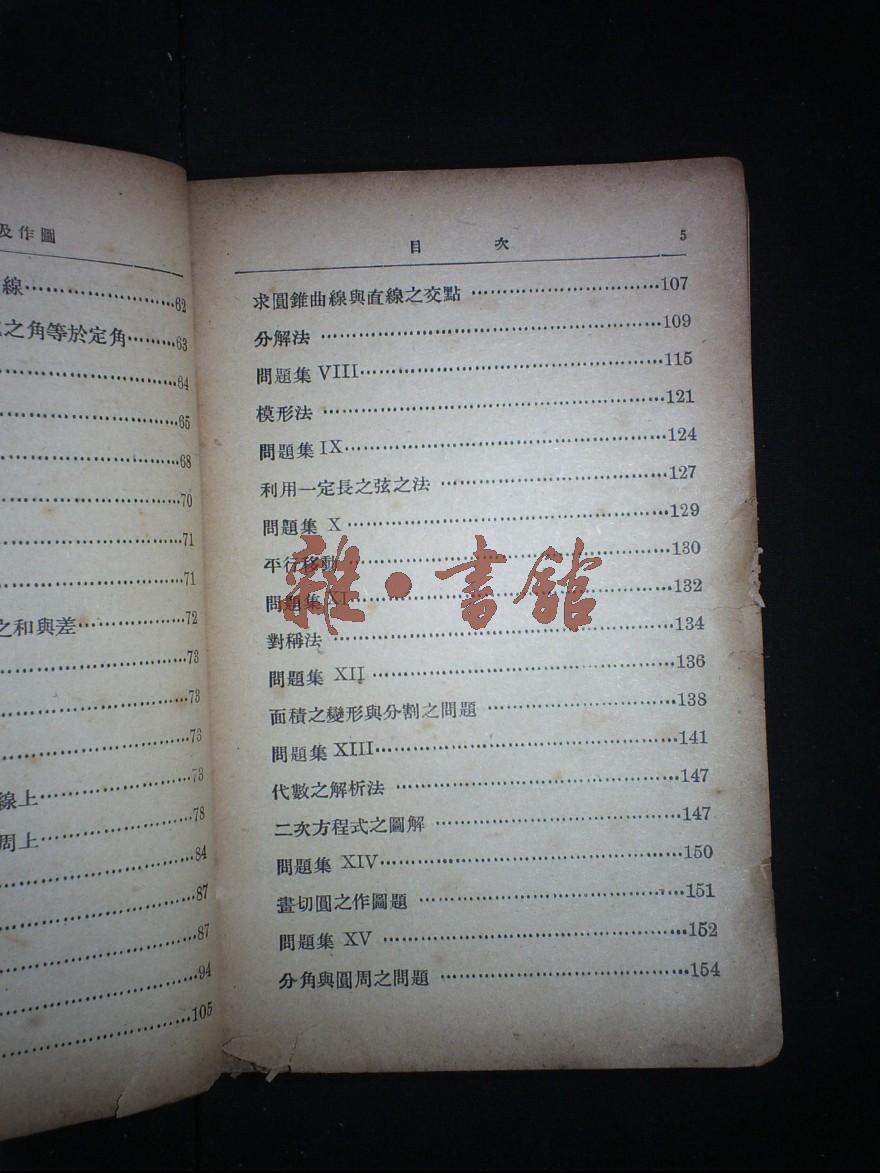 及作圖
線……62
之角等於定角……63
……64
……65
……68
……70
……71
……71
之和與差……72
……73
……73
……73
線上……73
周上……78
……84
……87
……87
……94
……105
目 次 5
求圓錐曲線與直線之交點……107
分解法……109
問題集 VIII……115
模形法……121
問題集 IX……124
利用一定長之弦之法……127
問題集 X……129
平行移動……130
問題集 XI……132
對稱法……134
問題集 XII……136
面積之變形與分割之問題……138
問題集 XIII……141
代數之解析法……147
二次方程式之圖解……147
問題集 XIV……150
畫切圓之作圖題……151
問題集 XV……152
分角與圓周之問題……154
雜·書館